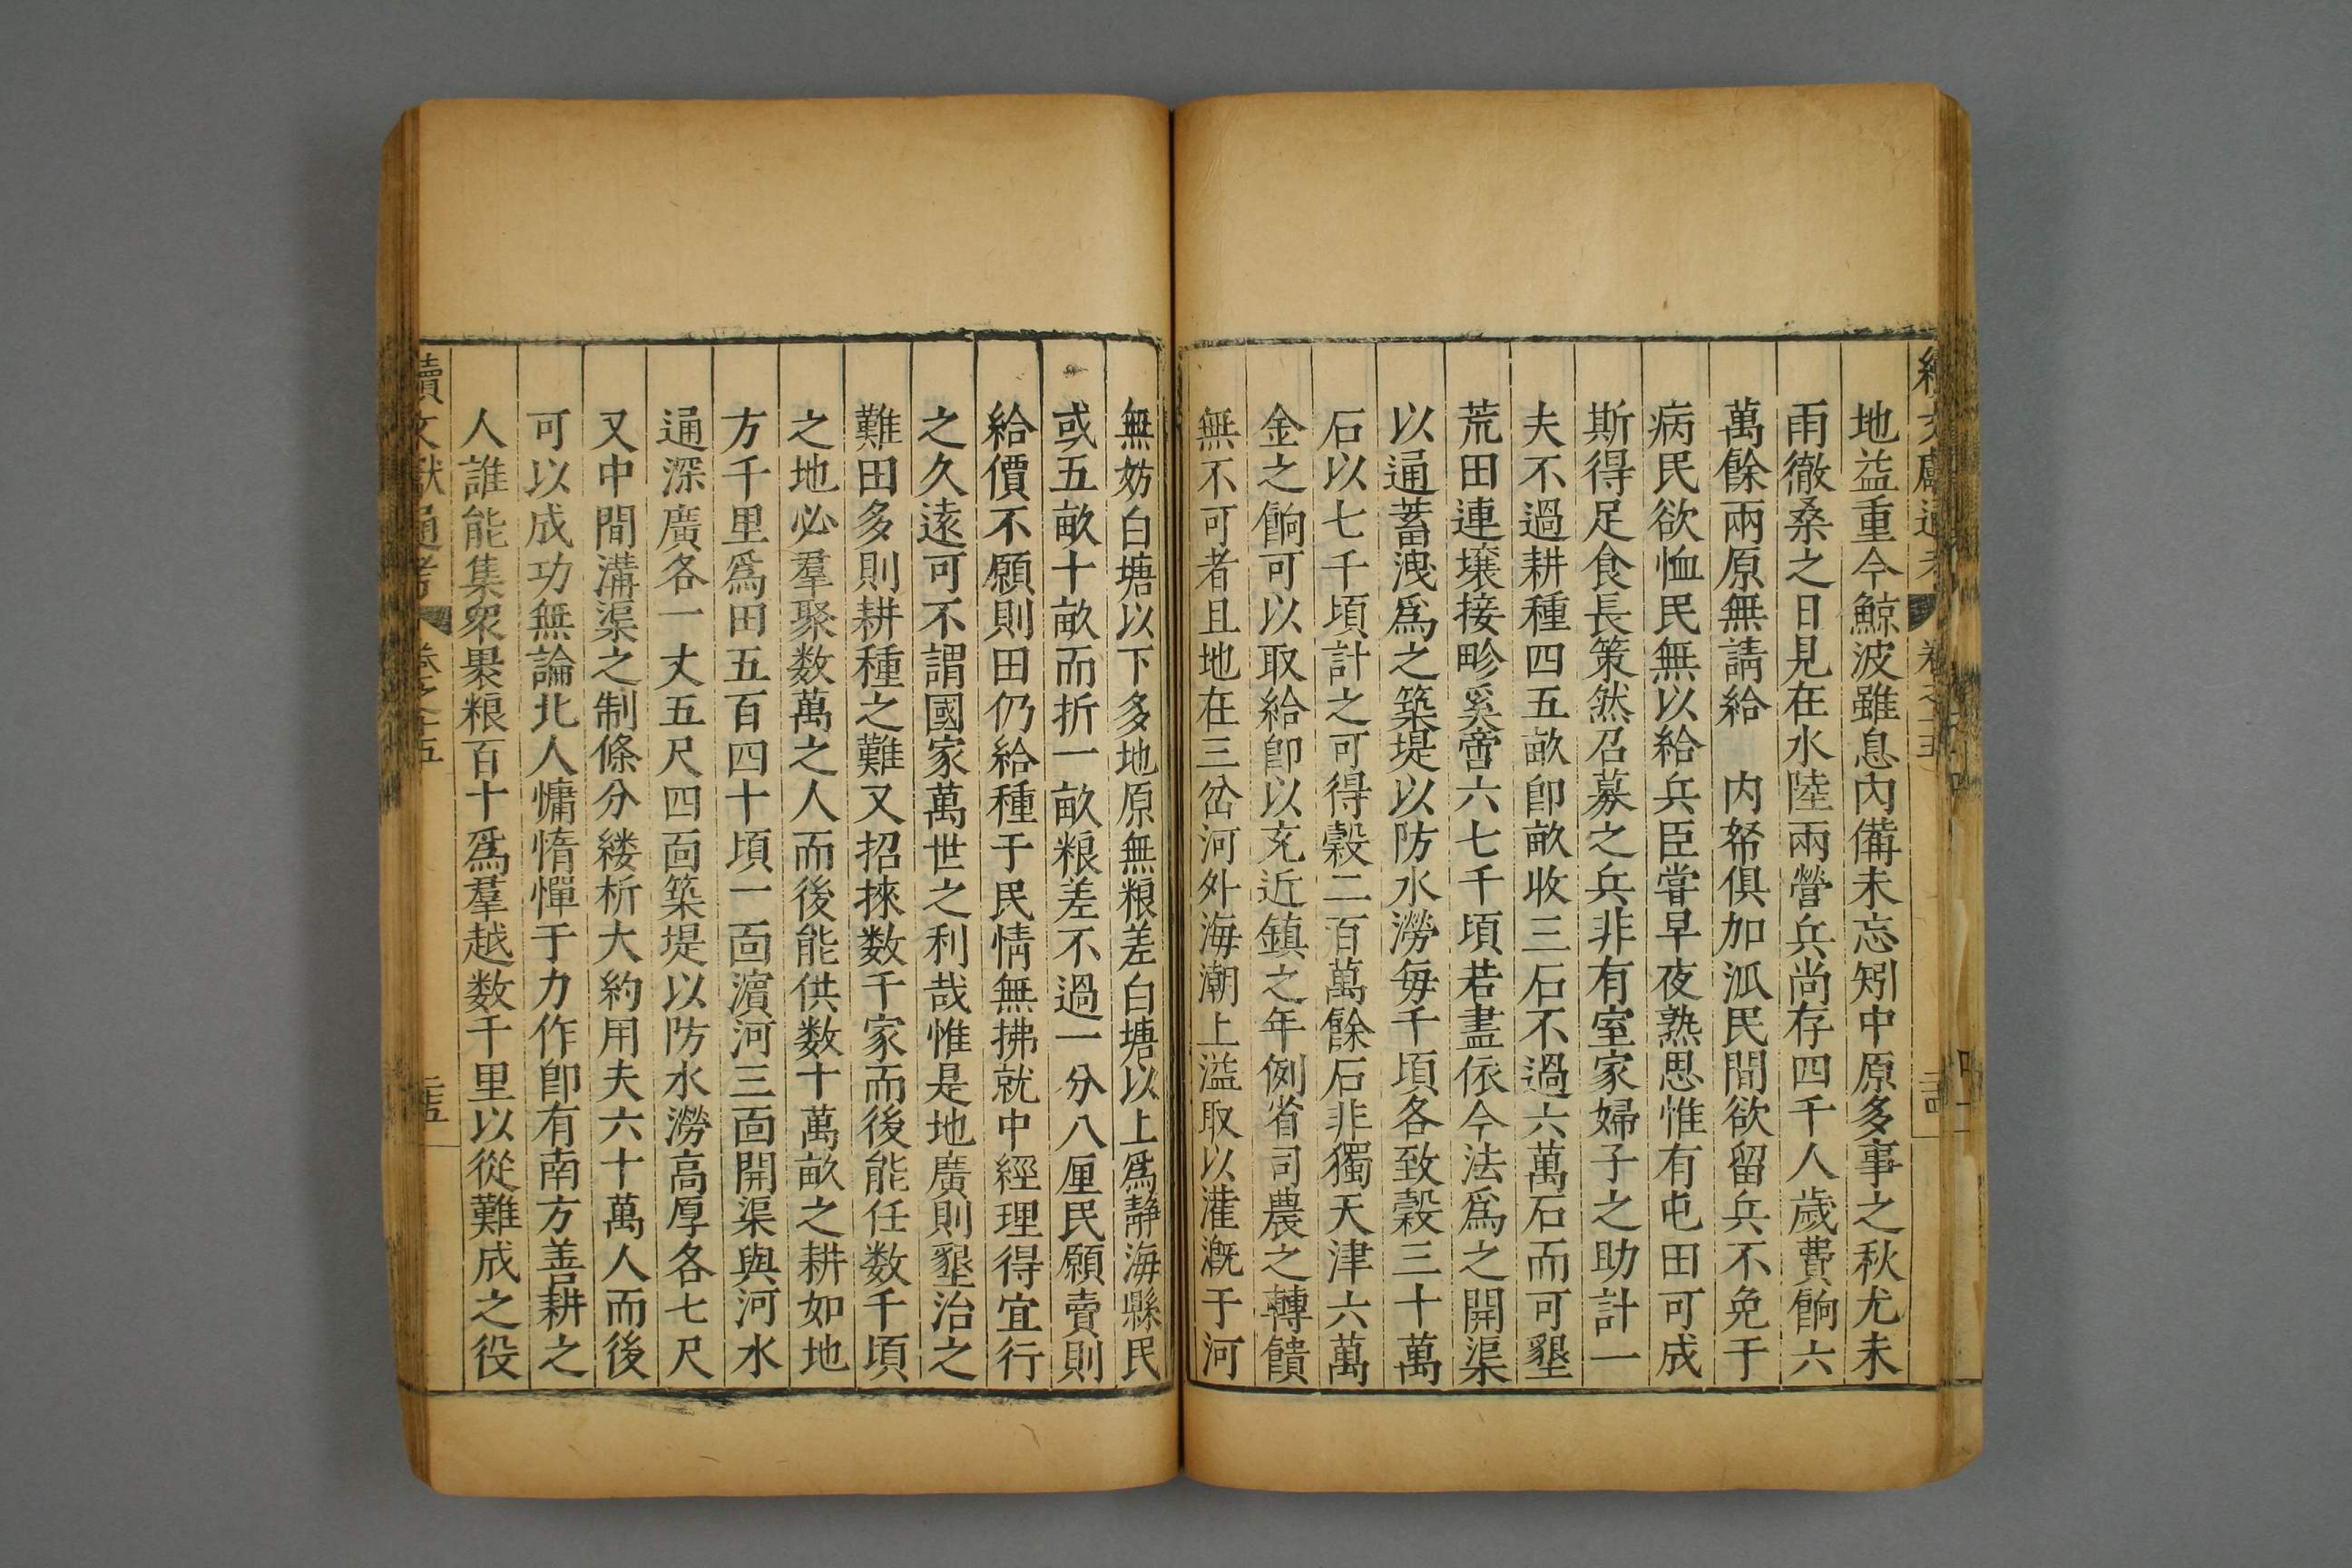 地益重今鯨波雖息內備未忘矧中原多事之秋尤未
雨徹桑之日見在水陸兩營兵尚存四千人歲費餉六
萬餘兩原無請給　內帑俱加泒民間欲留兵不免于
病民欲恤民無以給兵臣嘗早夜熟思惟有屯田可成
斯得足食長策然召募之兵非有室家婦子之助計一
夫不過耕種四五畝卽畝收三石不過六萬石而可墾
荒田連壤接畛奚啻六七千頃若盡依今法爲之開渠
以通蓄洩爲之築堤以防水澇每千頃各致穀三十萬
石以七千頃計之可得穀二百萬餘石非獨天津六萬
金之餉可以取給卽以充近鎮之年例省司農之轉饋
無不可者且地在三岔河外海潮上溢取以灌溉于河
無妨白塘以下多地原無粮差白塘以上爲靜海縣民
或五畝十畝而折一畝粮差不過一分八厘民願賣則
給價不願則田仍給種于民情無拂就中經理得宜行
之久遠可不謂國家萬世之利哉惟是地廣則墾治之
難田多則耕種之難又招徠数千家而後能任数千頃
之地必羣聚数萬之人而後能供数十萬畝之耕如地
方千里爲田五百四十頃一面濵河三面開渠與河水
通深廣各一丈五尺四面築堤以防水澇高厚各七尺
又中間溝渠之制條分縷析大約用夫六十萬人而後
可以成功無論北人慵惰憚于力作卽有南方善耕之
人誰能集衆褁粮百十爲羣越数千里以從難成之役
續文獻通考　卷之十五　三十五